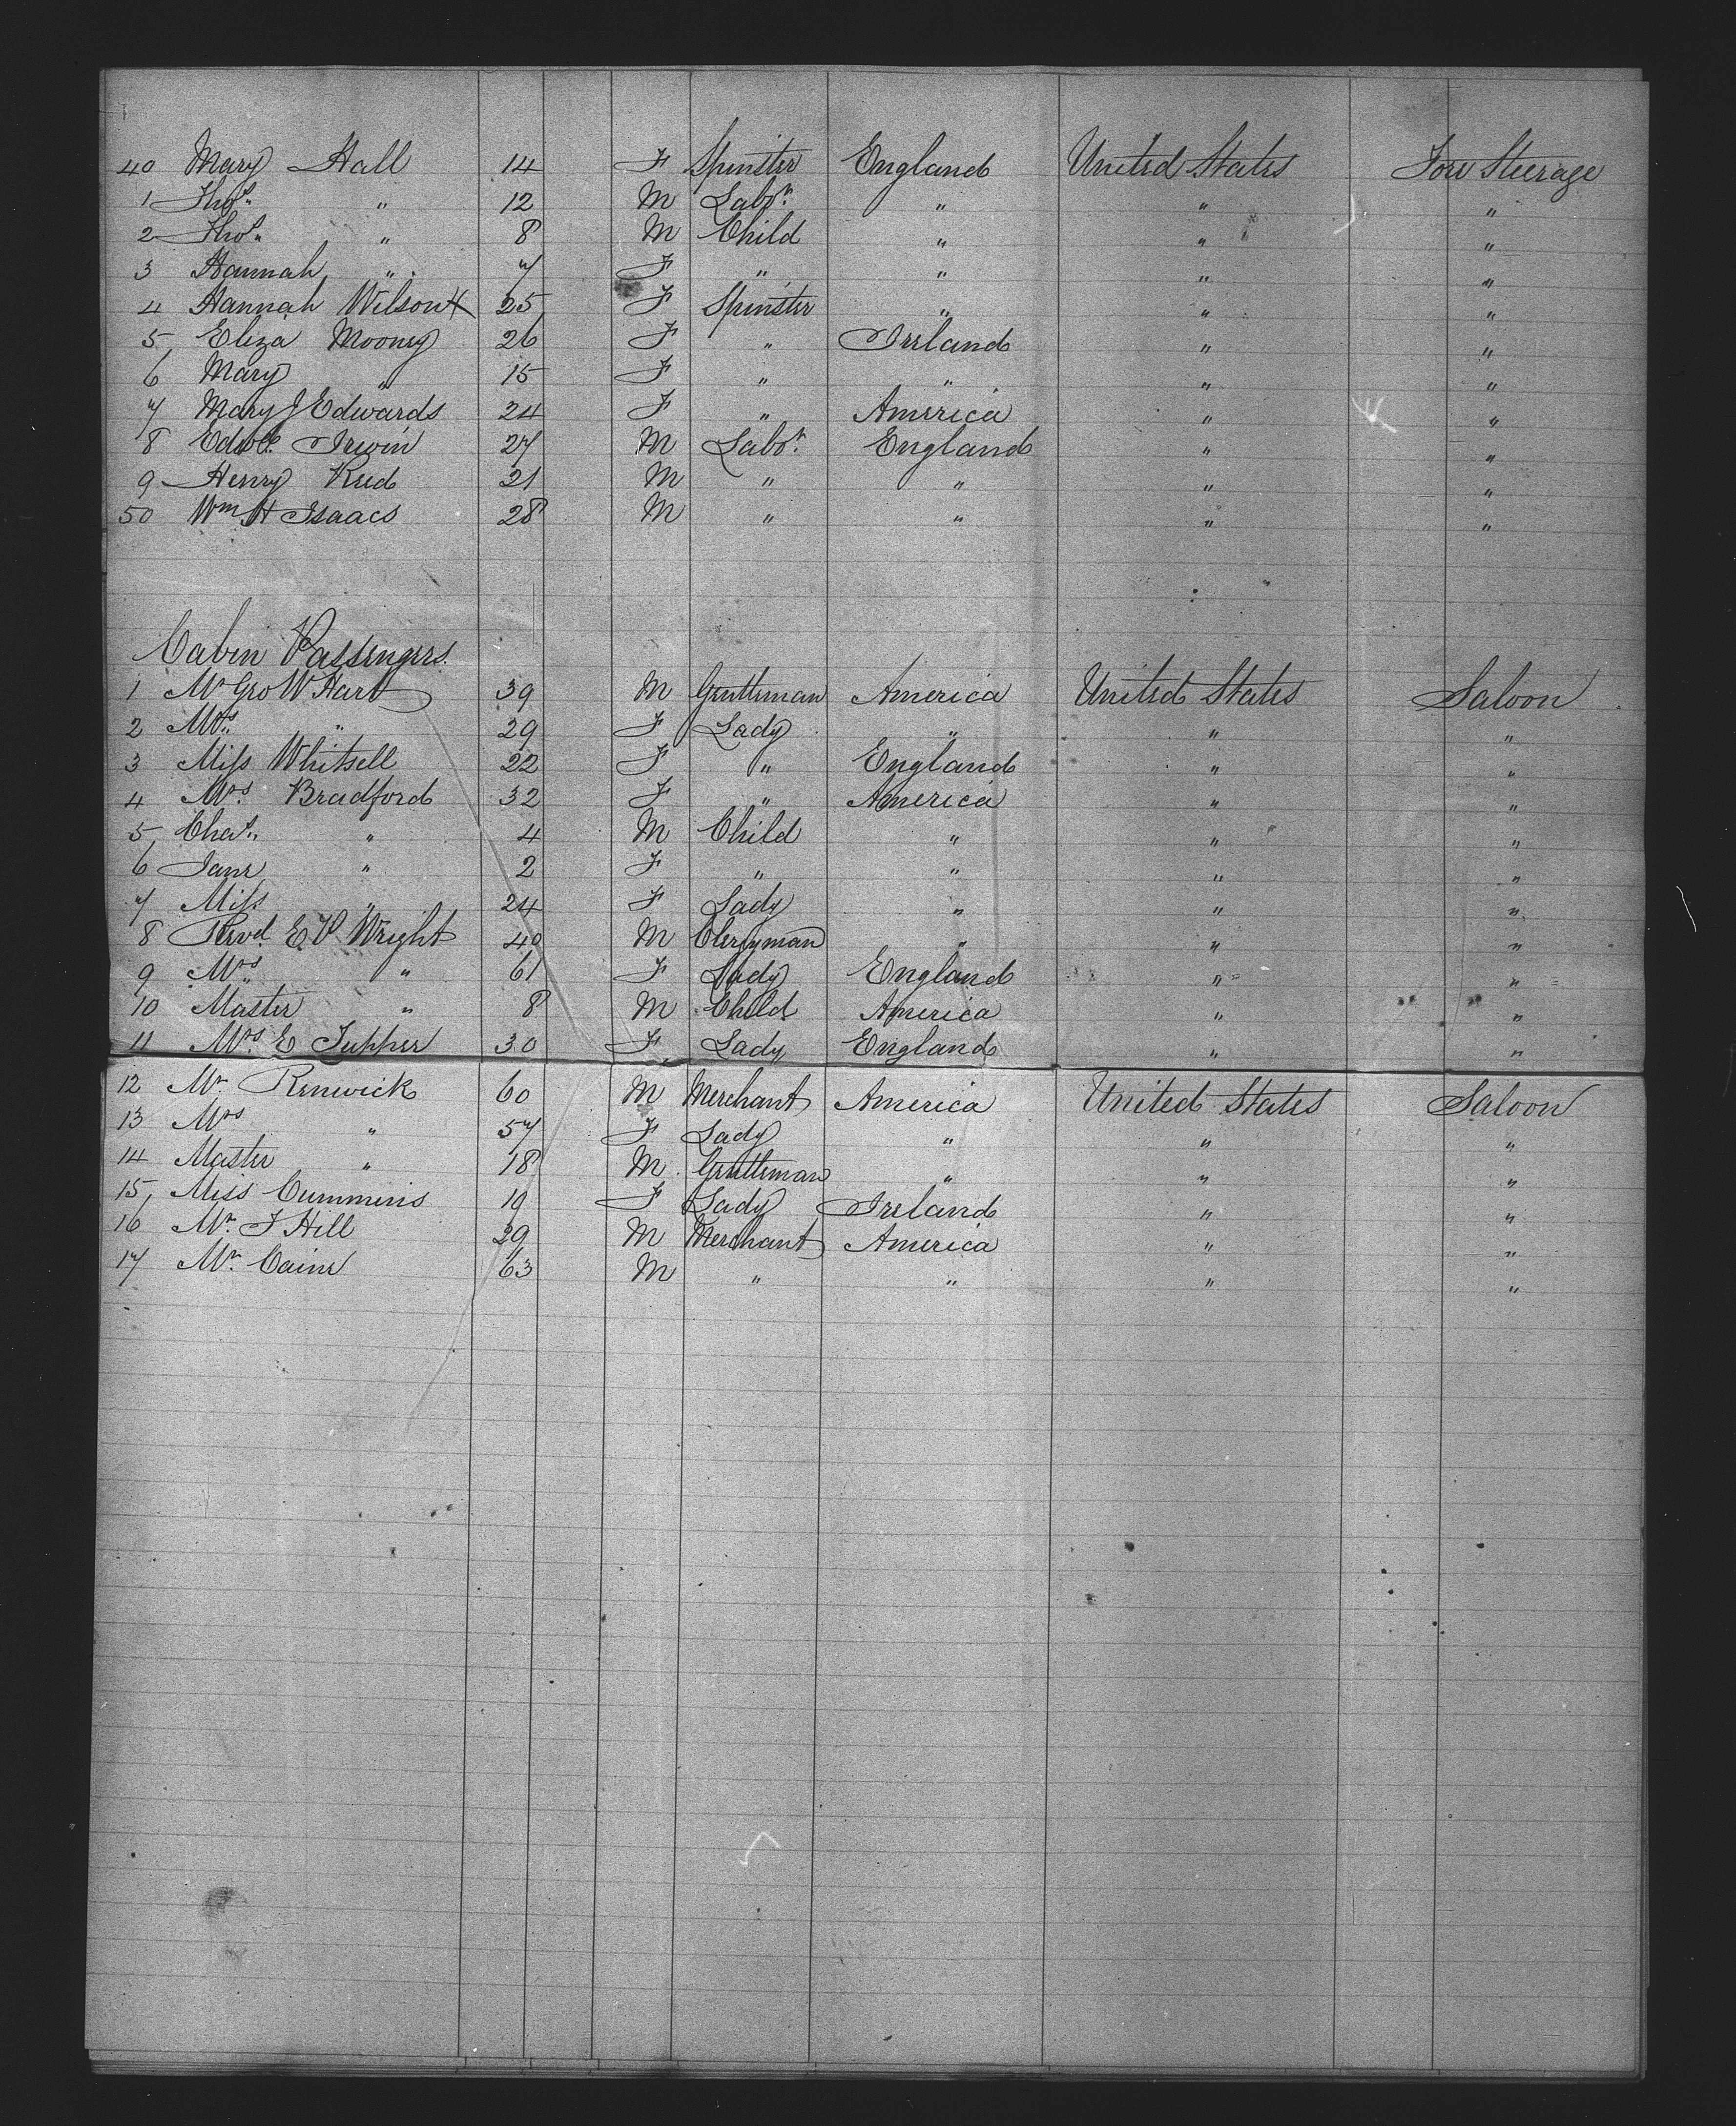 40 Mary Hall 14 F Spinster England United States Fore Steerage
1 Thos. " 12 M Labr. " " "
2 Thos. " 8 M Child " " "
3 Hannah " 7 F " " " "
4 Hannah Wilson X 25 F Spinster " " "
5 Eliza Mooney 26 F " Ireland " "
6 Mary " 15 F " " " "
7 Mary J Edwards 24 F " America " "
8 Edwd. Irwin 27 M Labr. England " "
9 Henry Reed 21 M " " " "
50 Wm H Isaacs 28 M " " " "
Cabin Passengers.
1 Mr Geo W Hart 39 M Gentleman America United States Saloon
2 Mrs. " 29 F Lady " " "
3 Miss Whitsell 22 F " England " "
4 Mrs. Bradford 32 F " America " "
5 Chas. " 4 M Child " " "
6 Jane " 2 F " " " "
7 Miss " 24 F Lady " " "
8 Revd. E P Wright 40 M Clergyman " " "
9 Mrs " 61 F Lady England " "
10 Master " 8 M Child America " "
11 Mrs. E Tupper 30 F Lady England " "
12 Mr. Renwick 60 M Merchant America United States Saloon
13 Mrs " 57 F Lady " " "
14 Master " 18 M Gentleman " " "
15 Miss Cummins 19 F Lady Ireland " "
16 Mr. J Hill 29 M Merchant America " "
17 Mr. Caine 63 M " " " "